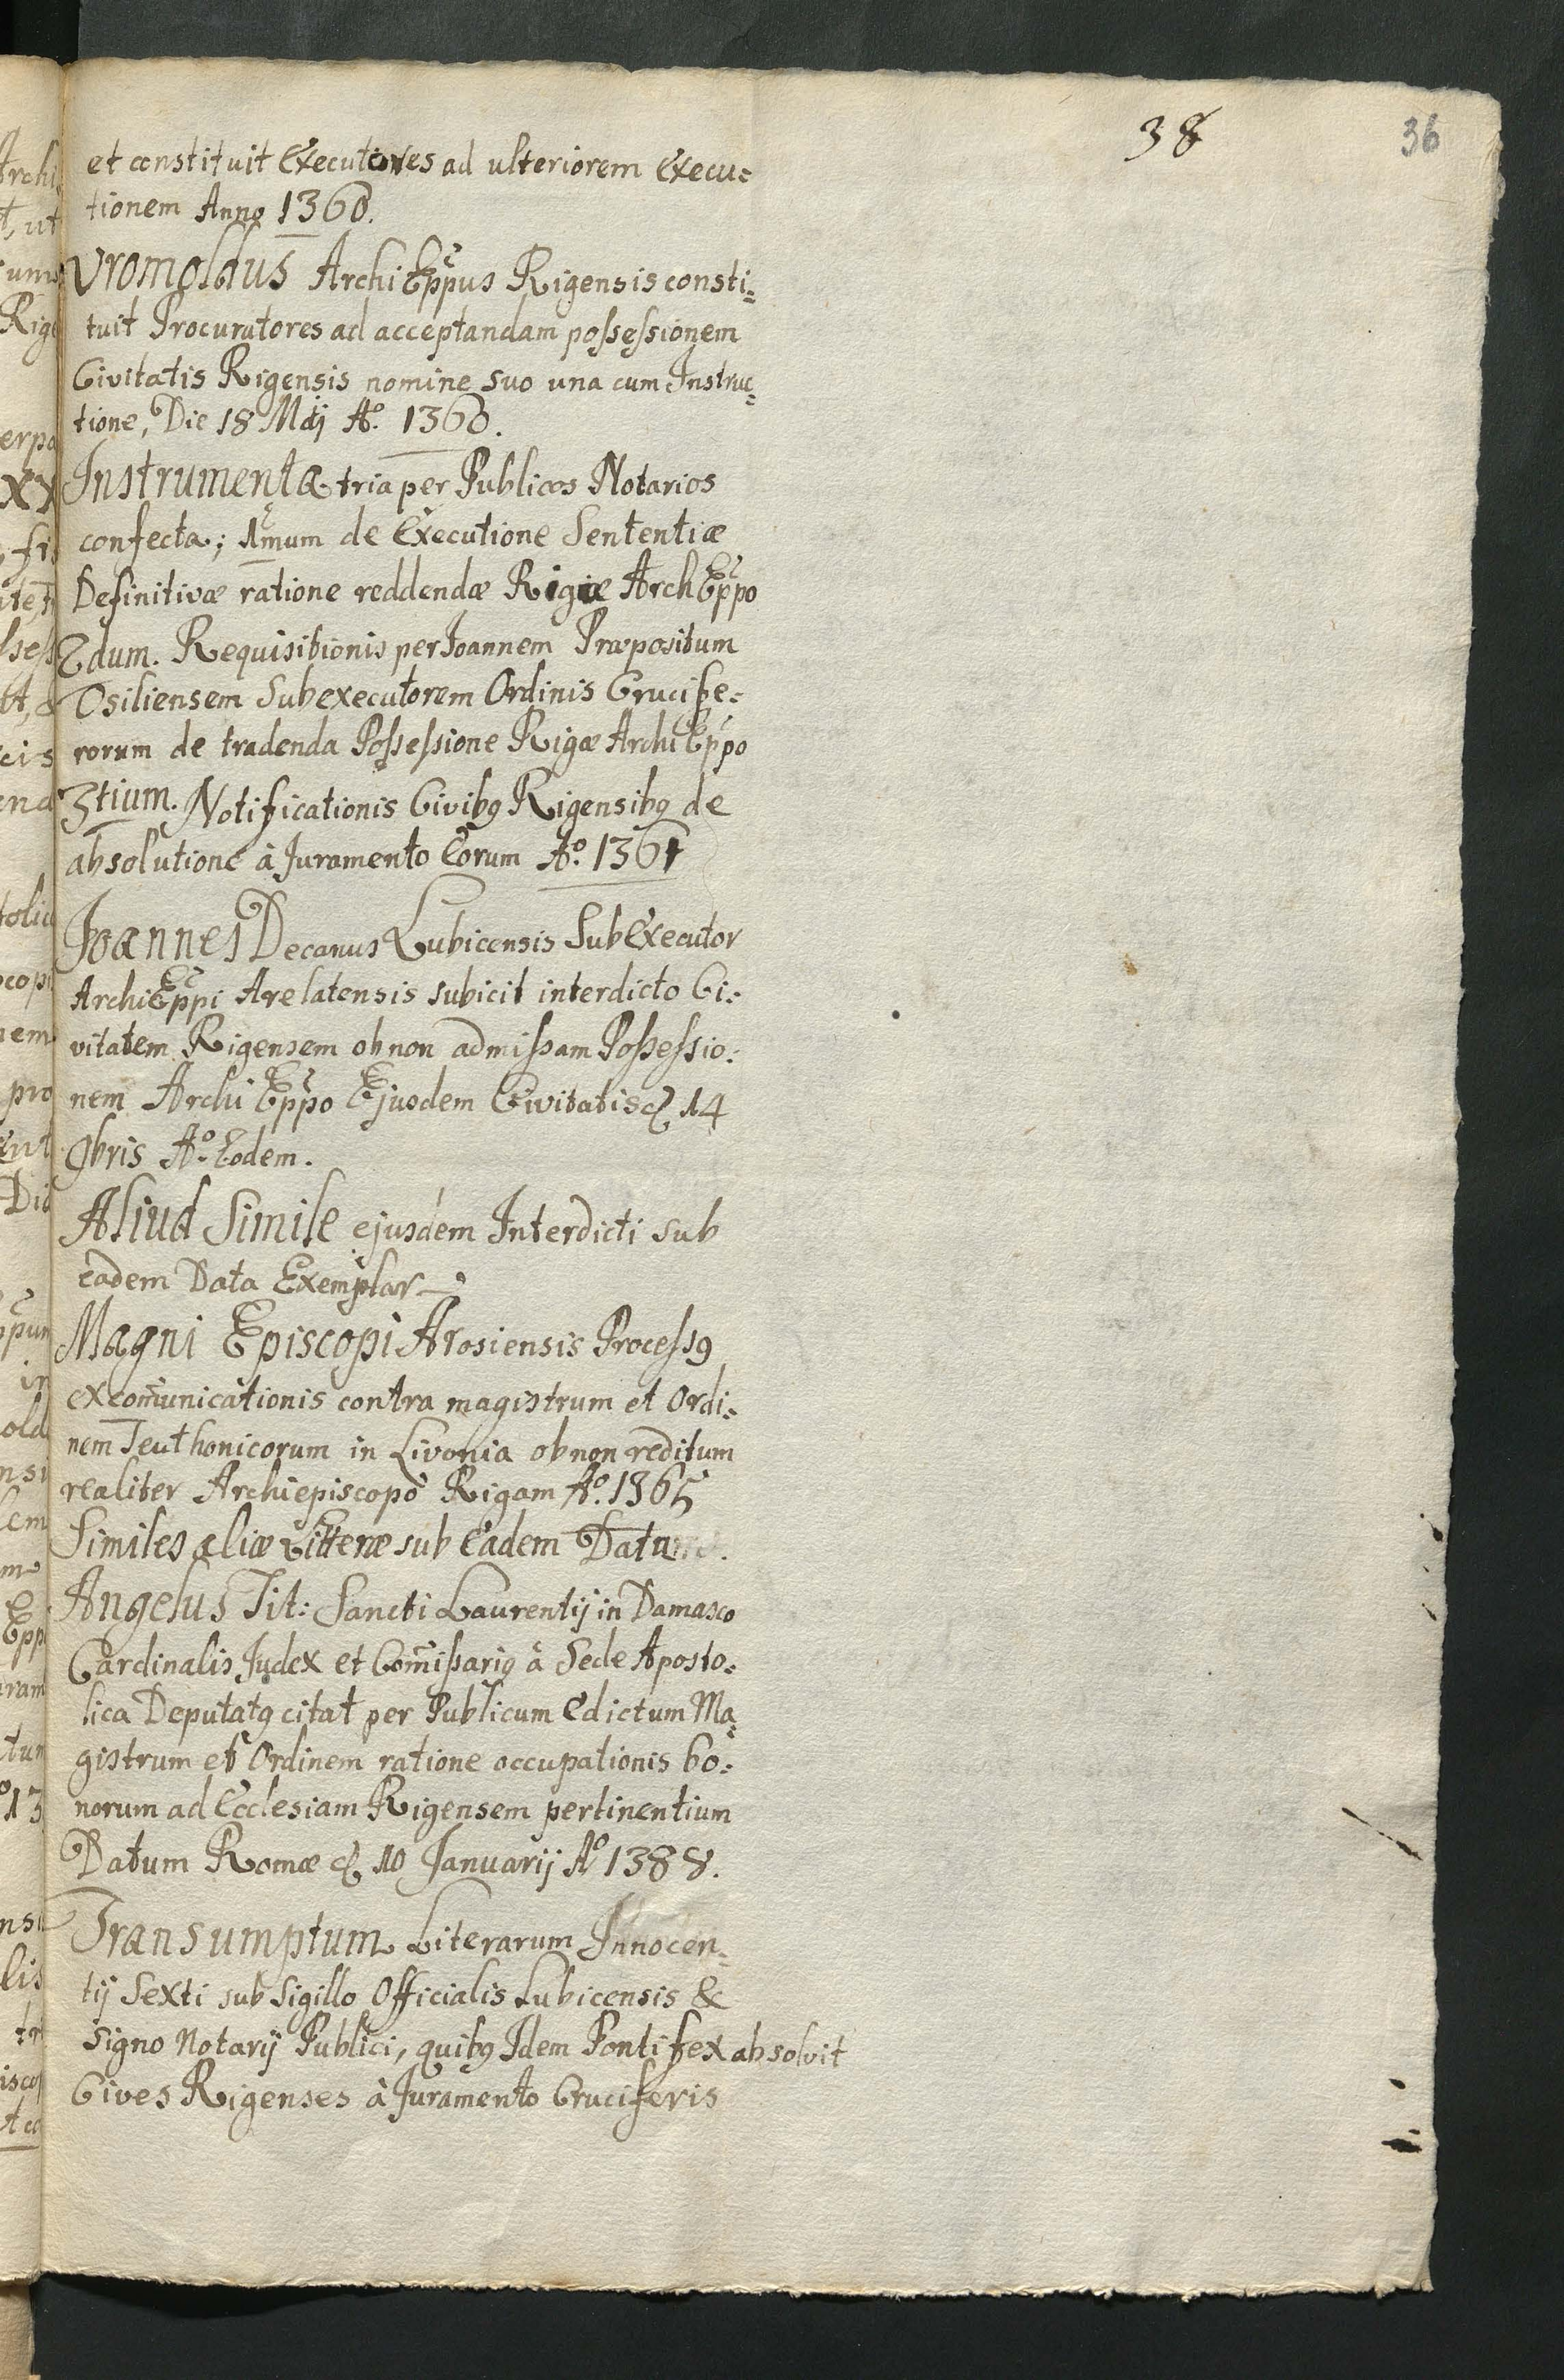 38
36
et constituit Executores ad ulteriorem Execu=
tionem Anno 1360.
Vromoldus Archi Eppus Rigensis consti=
tuit Procuratores ad acceptandam possessionem
Civitatis Rigensis nomine suo una cum Instruc=
tione, Die 18 Maij Aº. 1360.
Instrumenta tria per Publicos Notarios
confecta; 1mum de Executione Sententiæ
Definitivæ ratione reddendæ Rigæ ArchEppo
2dum. Requisitionis per Joannem Præpositum
Osiliensem Subexecutorem Ordinis Crucife=
rorum de tradenda Possessione Rigæ Archi Eppo
3tium. Notificationis Civibꝰ Rigensibꝰ de
absolutione à Juramento Eorum Aº. 1361
Joannes Decanus Lubicensis SubExecutor
ArchiEppi Arelatensis subicit interdicto Ci=
vitatem Rigensem ob non admissam Possessio=
nem Archi Eppo Ejusdem Civitatis d. 14
9bris Aº. Eodem.
Aliud Simile ejusdem Interdicti sub
eadem Data Exemplar
Magni Episcopi Arosiensis Processꝰ
excom̃unicationis contra magistrum et Ordi=
nem Teuthonicorum in Livonia ob non reditum
realiter Archiepiscopo Rigam Aº. 1365
Similes aliæ Litteræ sub Eadem
Angelus Tit: Sancti Laurentij in Damasco
Cardinalis Judex et Com̃issariꝰ à Sede Aposto=
lica Deputatꝰ citat per Publicum Edictum Ma=
gistrum et Ordinem ratione occupationis bo=
norum ad Ecclesiam Rigensem pertinentium
Datum Romæ d. 10 Januarij Aº 1388.
Transumptum Literarum Innocen=
tij Sexti sub Sigillo Officialis Lubicensis &
Signo Notarij Publici, quibꝰ Idem Pontifex absolvit
Cives Rigenses à Juramento Cruciferis